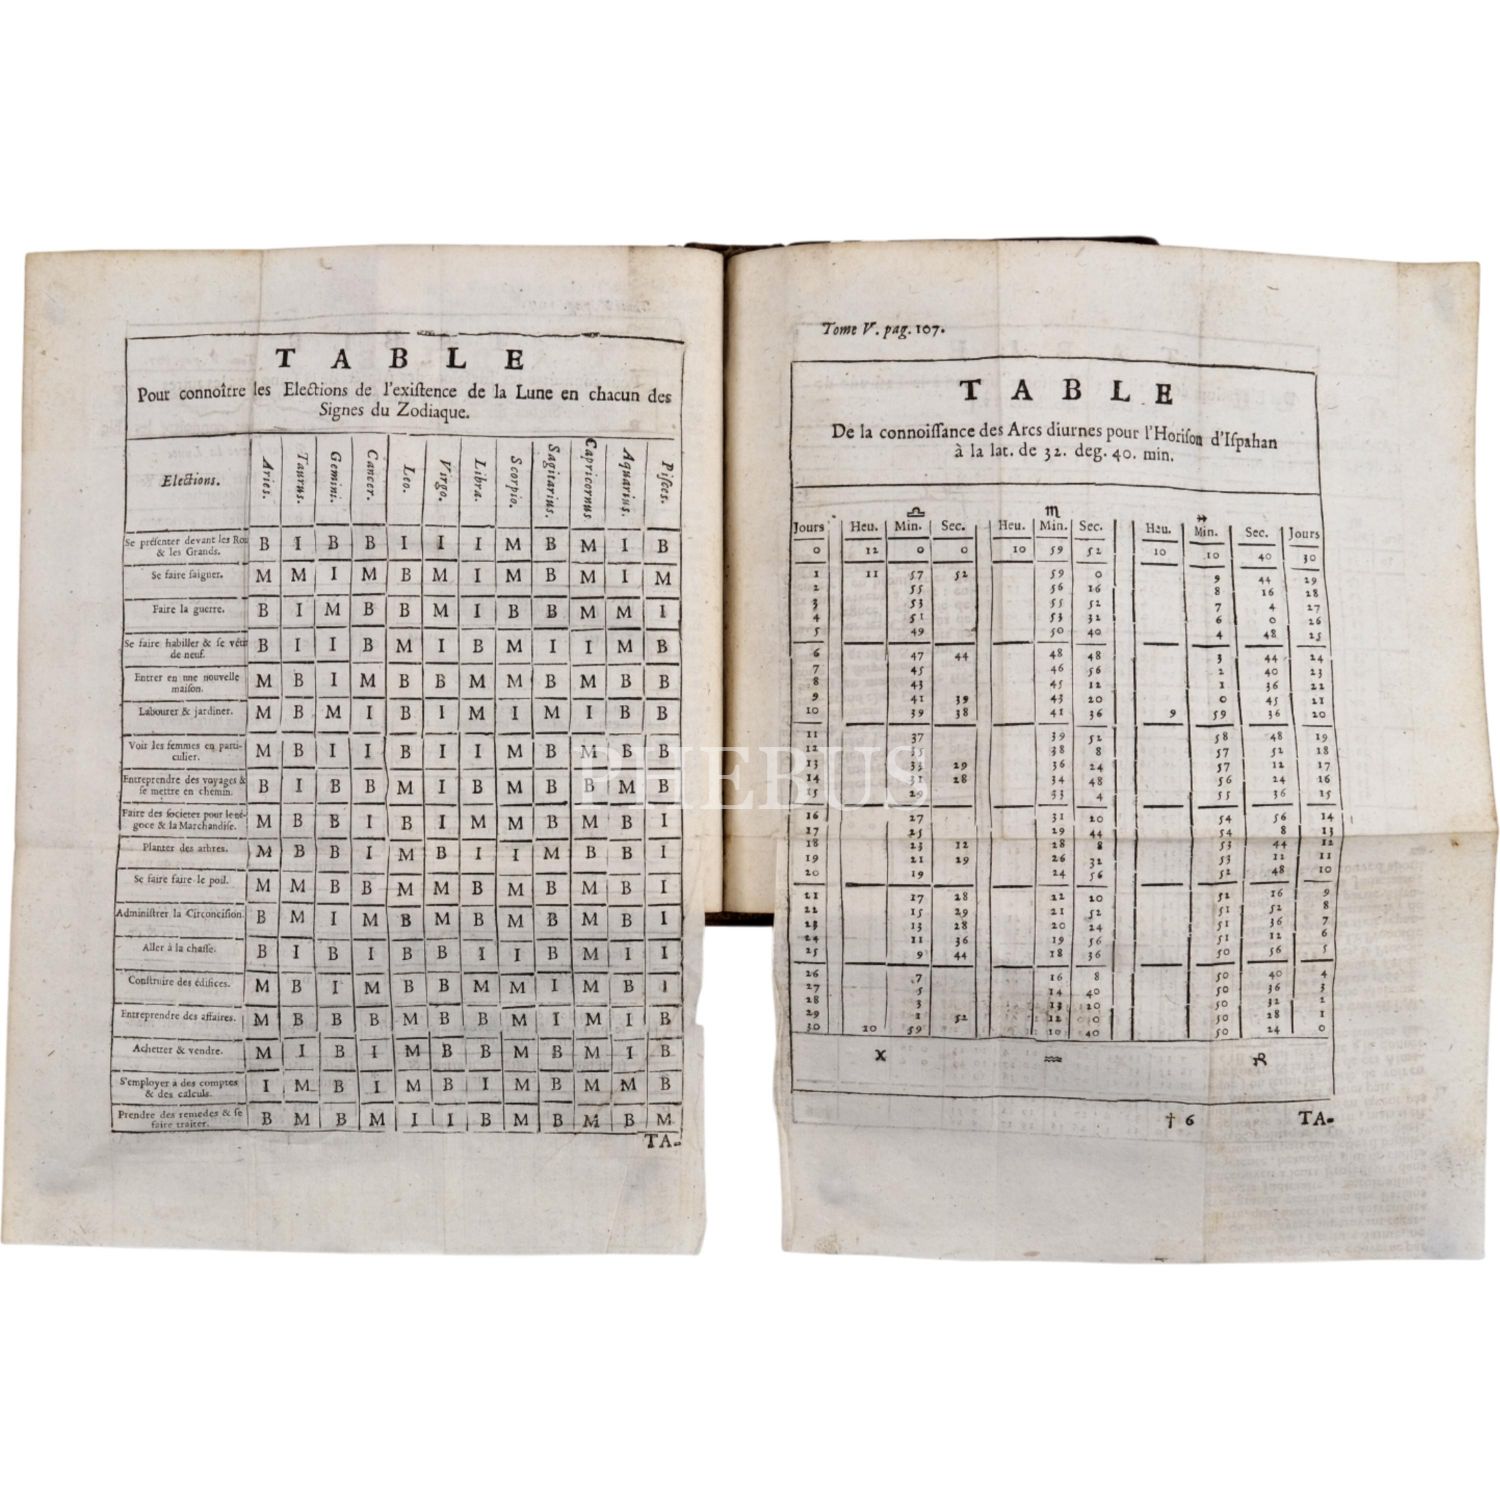 TABLE
Pour connoître les Elections de l'existence de la Lune en chacun des
Signes du Zodiaque.
Elections. Aries. Taurus. Gemini. Cancer. Leo. Virgo. Libra. Scorpio. Sagitarius. Capricornus Aquarius. Pisces.
Se présenter devant les Rois & les Grands. B I B B I I I M B M I B
Se faire saigner. M M I M B M I M B M I M
Faire la guerre. B I M B B M I B B M M I
Se faire habiller & se vêtir de neuf. B I I B M I B M I I M B
Entrer en une nouvelle maison. M B I M B B M M B M B B
Labourer & jardiner. M B M I B I M I M I B B
Voir les femmes en particulier. M B I I B I I M B M B B
Entreprendre des voyages & se mettre en chemin. B I B B M I B M B B M B
Faire des societez pour le négoce & la Marchandise. M B B I B I M M B M B I
Planter des arbres. M B B I M B I I M B B I
Se faire faire le poil. M M B B M M B M B M B I
Administrer la Circoncision. B M I M B M B M B M B I
Aller à la chasse. B I B I B B I I B M I I
Construire des édifices. M B I M B B M M I M B I
Entreprendre des affaires. M B B B M B B M I M I B
Achetter & vendre. M I B I M B B M B M I B
S'employer à des comptes & des calculs. I M B I M B I M B M M B
Prendre des remedes & se faire traiter. B M B M I I B M B M B M
TA-
Tome V. pag. 107.
TABLE
De la connoissance des Arcs diurnes pour l'Horison d'Ispahan
à la lat. de 32. deg. 40. min.
♎ ♏ ♐
Jours Heu. Min. Sec. Heu. Min. Sec. Heu. Min. Sec. Jours
0 12 0 0 10 59 52 10 10 40 30
1 11 57 52 59 0 9 44 29
2 55 56 16 8 16 28
3 53 55 52 7 4 27
4 51 53 32 6 0 26
5 49 50 40 4 48 25
6 47 44 48 48 3 44 24
7 45 46 56 2 40 23
8 43 45 12 1 36 22
9 41 39 43 20 0 45 21
10 39 38 41 36 9 59 36 20
11 37 39 52 58 48 19
12 35 38 8 57 52 18
13 33 29 36 24 57 12 17
14 31 28 34 48 56 24 16
15 29 33 4 55 36 15
16 27 31 20 54 56 14
17 25 29 44 54 8 13
18 23 12 28 8 53 44 12
19 21 29 26 32 53 12 11
20 19 24 56 52 48 10
21 17 28 22 20 52 16 9
22 15 29 21 52 51 52 8
23 13 28 20 24 51 36 7
24 11 36 19 56 51 12 6
25 9 44 18 36 50 56 5
26 7 16 8 50 40 4
27 5 14 40 50 36 3
28 3 13 20 50 32 2
29 1 52 12 0 50 28 1
30 10 59 10 40 50 24 0
♓ ♒ ♑
† 6 TA-
PHEBUS